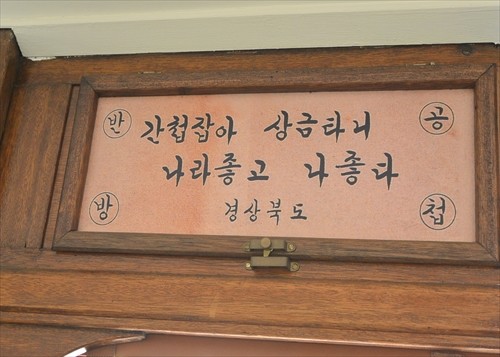 반 공
간첩잡아 상금타니
나라좋고 나좋다
방 첩
경상북도